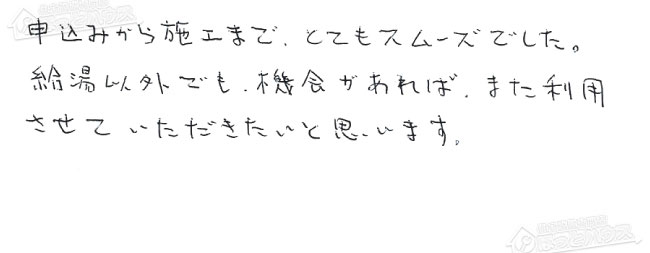 申込みから施工まで、とてもスムーズでした。
給湯以外でも、機会があれば、また利用
させていただきたいと思います。